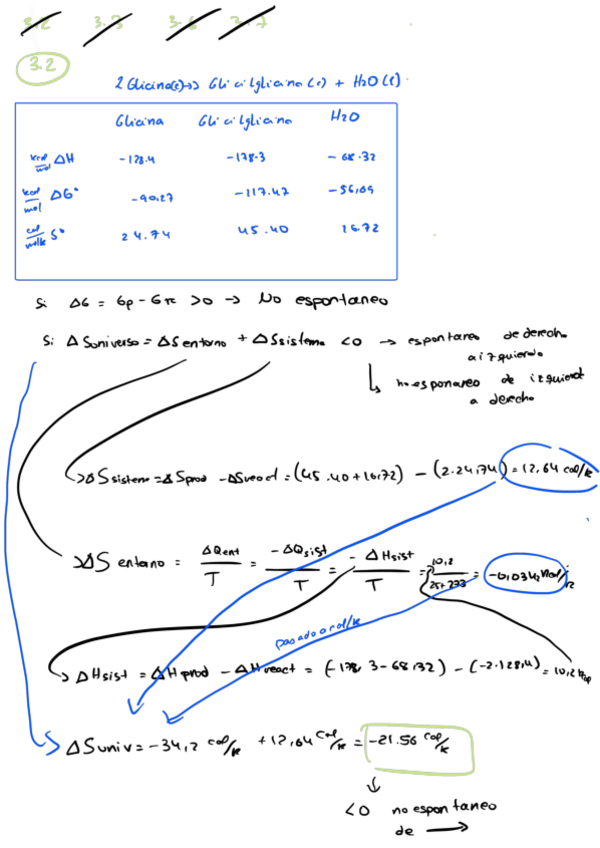 3.2 3.3 3.6 3.7
3.2
2 Glicina(s) → Glicilglicina (s) + H2O (l)
Glicina Glicilglicina H2O
kcal/mol ΔH -128.4 -178.3 -68.32
kcal/mol ΔG° -90,27 -117.42 -56,69
cal/molk S° 24.74 45.40 16.72
Si ΔG = Gp - GR > 0 → No espontaneo
Si ΔSuniverso = ΔSentorno + ΔSsistema < 0 → espontaneo de derecha
a izquierda
↳ no esponaneo de izquierd
a derecha
→ ΔSsistem = ΔSprod - ΔSreact = (45.40 + 16,72) - (2.24,74) = 12,64 cal/k
→ ΔS entorno = ΔQent/T = -ΔQsist/T = -ΔHsist/T = 10,2/25+273 = -0,0342 kcal/k
pasado a cal/k
→ ΔHsist = ΔHprod - ΔHreact = (-178,3-68,32) - (-2.128,4) = 10,2
ΔSuniv = -34,2 cal/k + 12,64 cal/k = -21.56 cal/k
<0 no espontaneo
de →